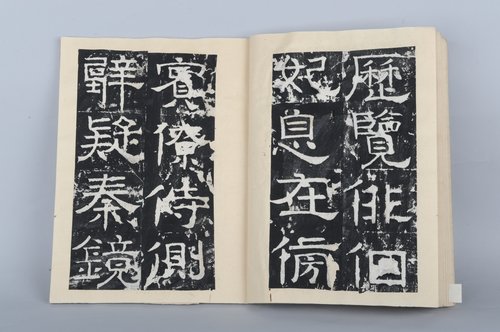 歷覽俳佪
妃息在傍
賓僚侍側
壁疑秦鏡